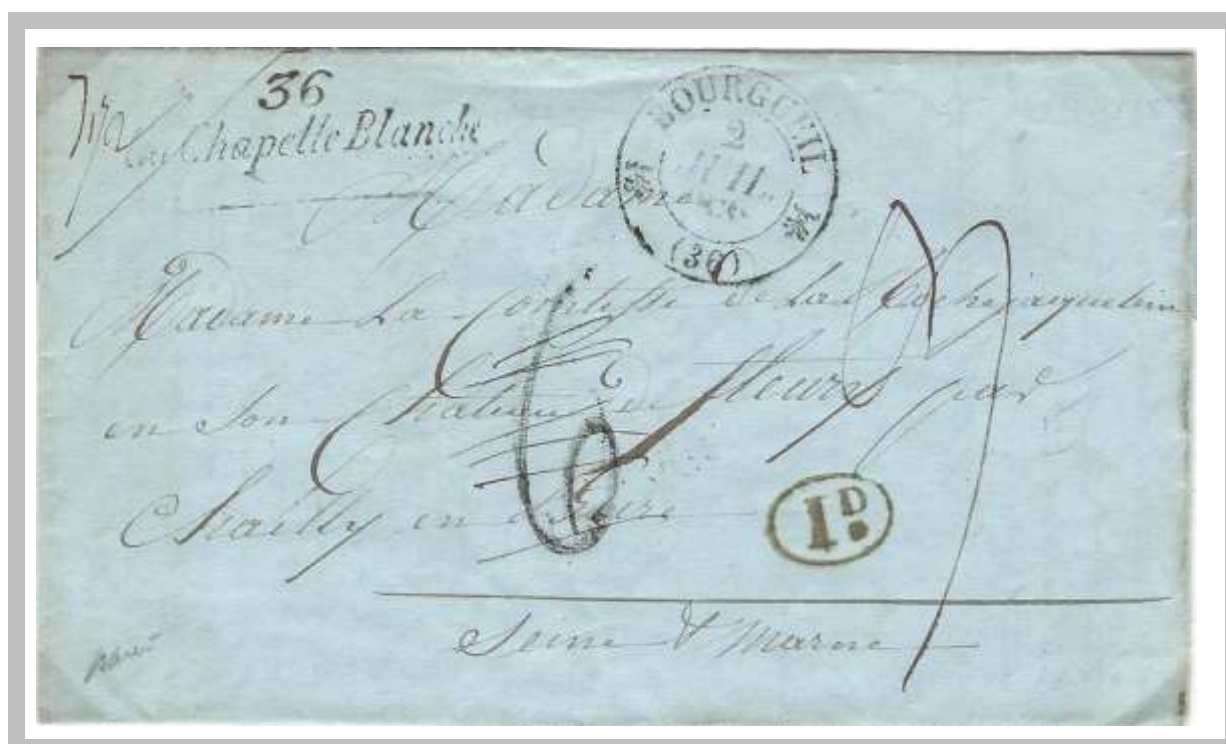 36
La Chapelle Blanche
BOURGUEIL
2
JUIL
(36)
Madame
Madame La Comtesse de La Rochejaquelein
en son Château de fleury par
Chailly en Bierre
1D
Seine & Marne